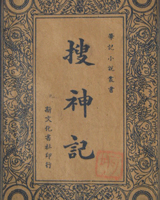 筆記小說叢書
搜神記
新文化書社印行